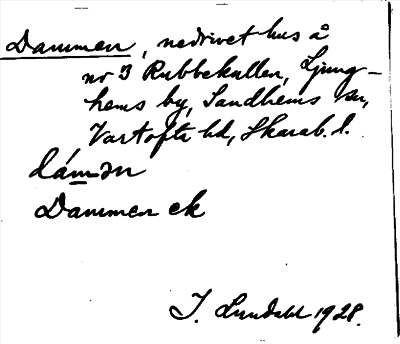 Dammen, nedrivet hus å
nr 3 Rubbekullen, Ljung-
hems by, Sandhems sn,
Vartofta hd, Skarab. l.
dámən
Dammen ek
I. Lundahl 1928.